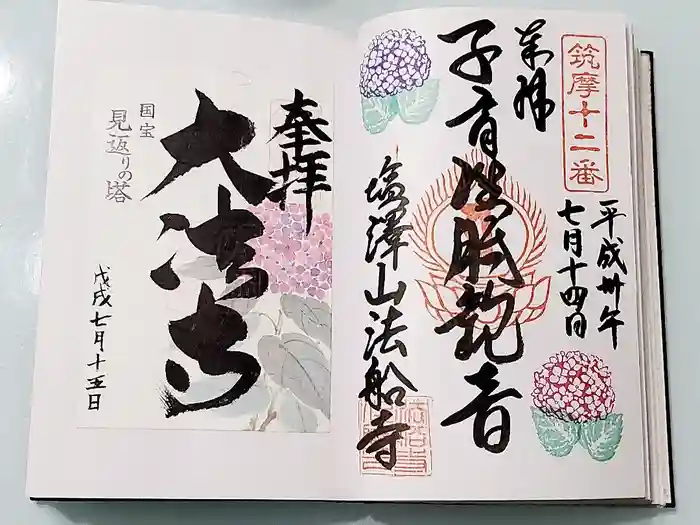 筑摩十二番
平成卅年
七月十四日
奉拝
子育誕生観音
塩澤山法船寺
奉拝
大法寺
国宝
見返りの塔
戊戌七月十五日